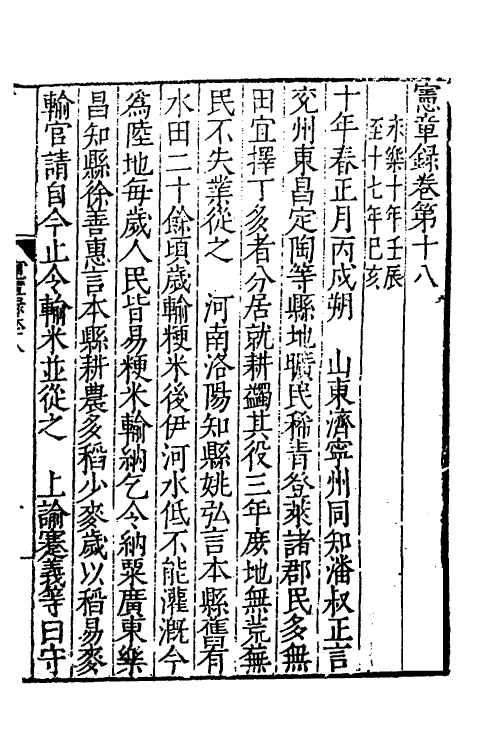 憲章録卷第十八
永樂十年壬辰
至十七年己亥
十年春正月丙戍朔　山東濟寧州同知潘叔正言
兖州東昌定陶等縣地曠民稀青登萊諸郡民多無
田宜擇丁多者分居就耕蠲其役三年庻地無荒蕪
民不失業從之　河南洛陽知縣姚弘言本縣舊有
水田二十餘頃歲輸粳米後伊河水低不能灌漑今
為陸地每歲人民皆易粳米輸納乞令納粟廣東樂
昌知縣徐善惠言本縣耕農多稻少麥歲以稻易麥
輸官請自今止令輸米並從之　上諭蹇義等曰守